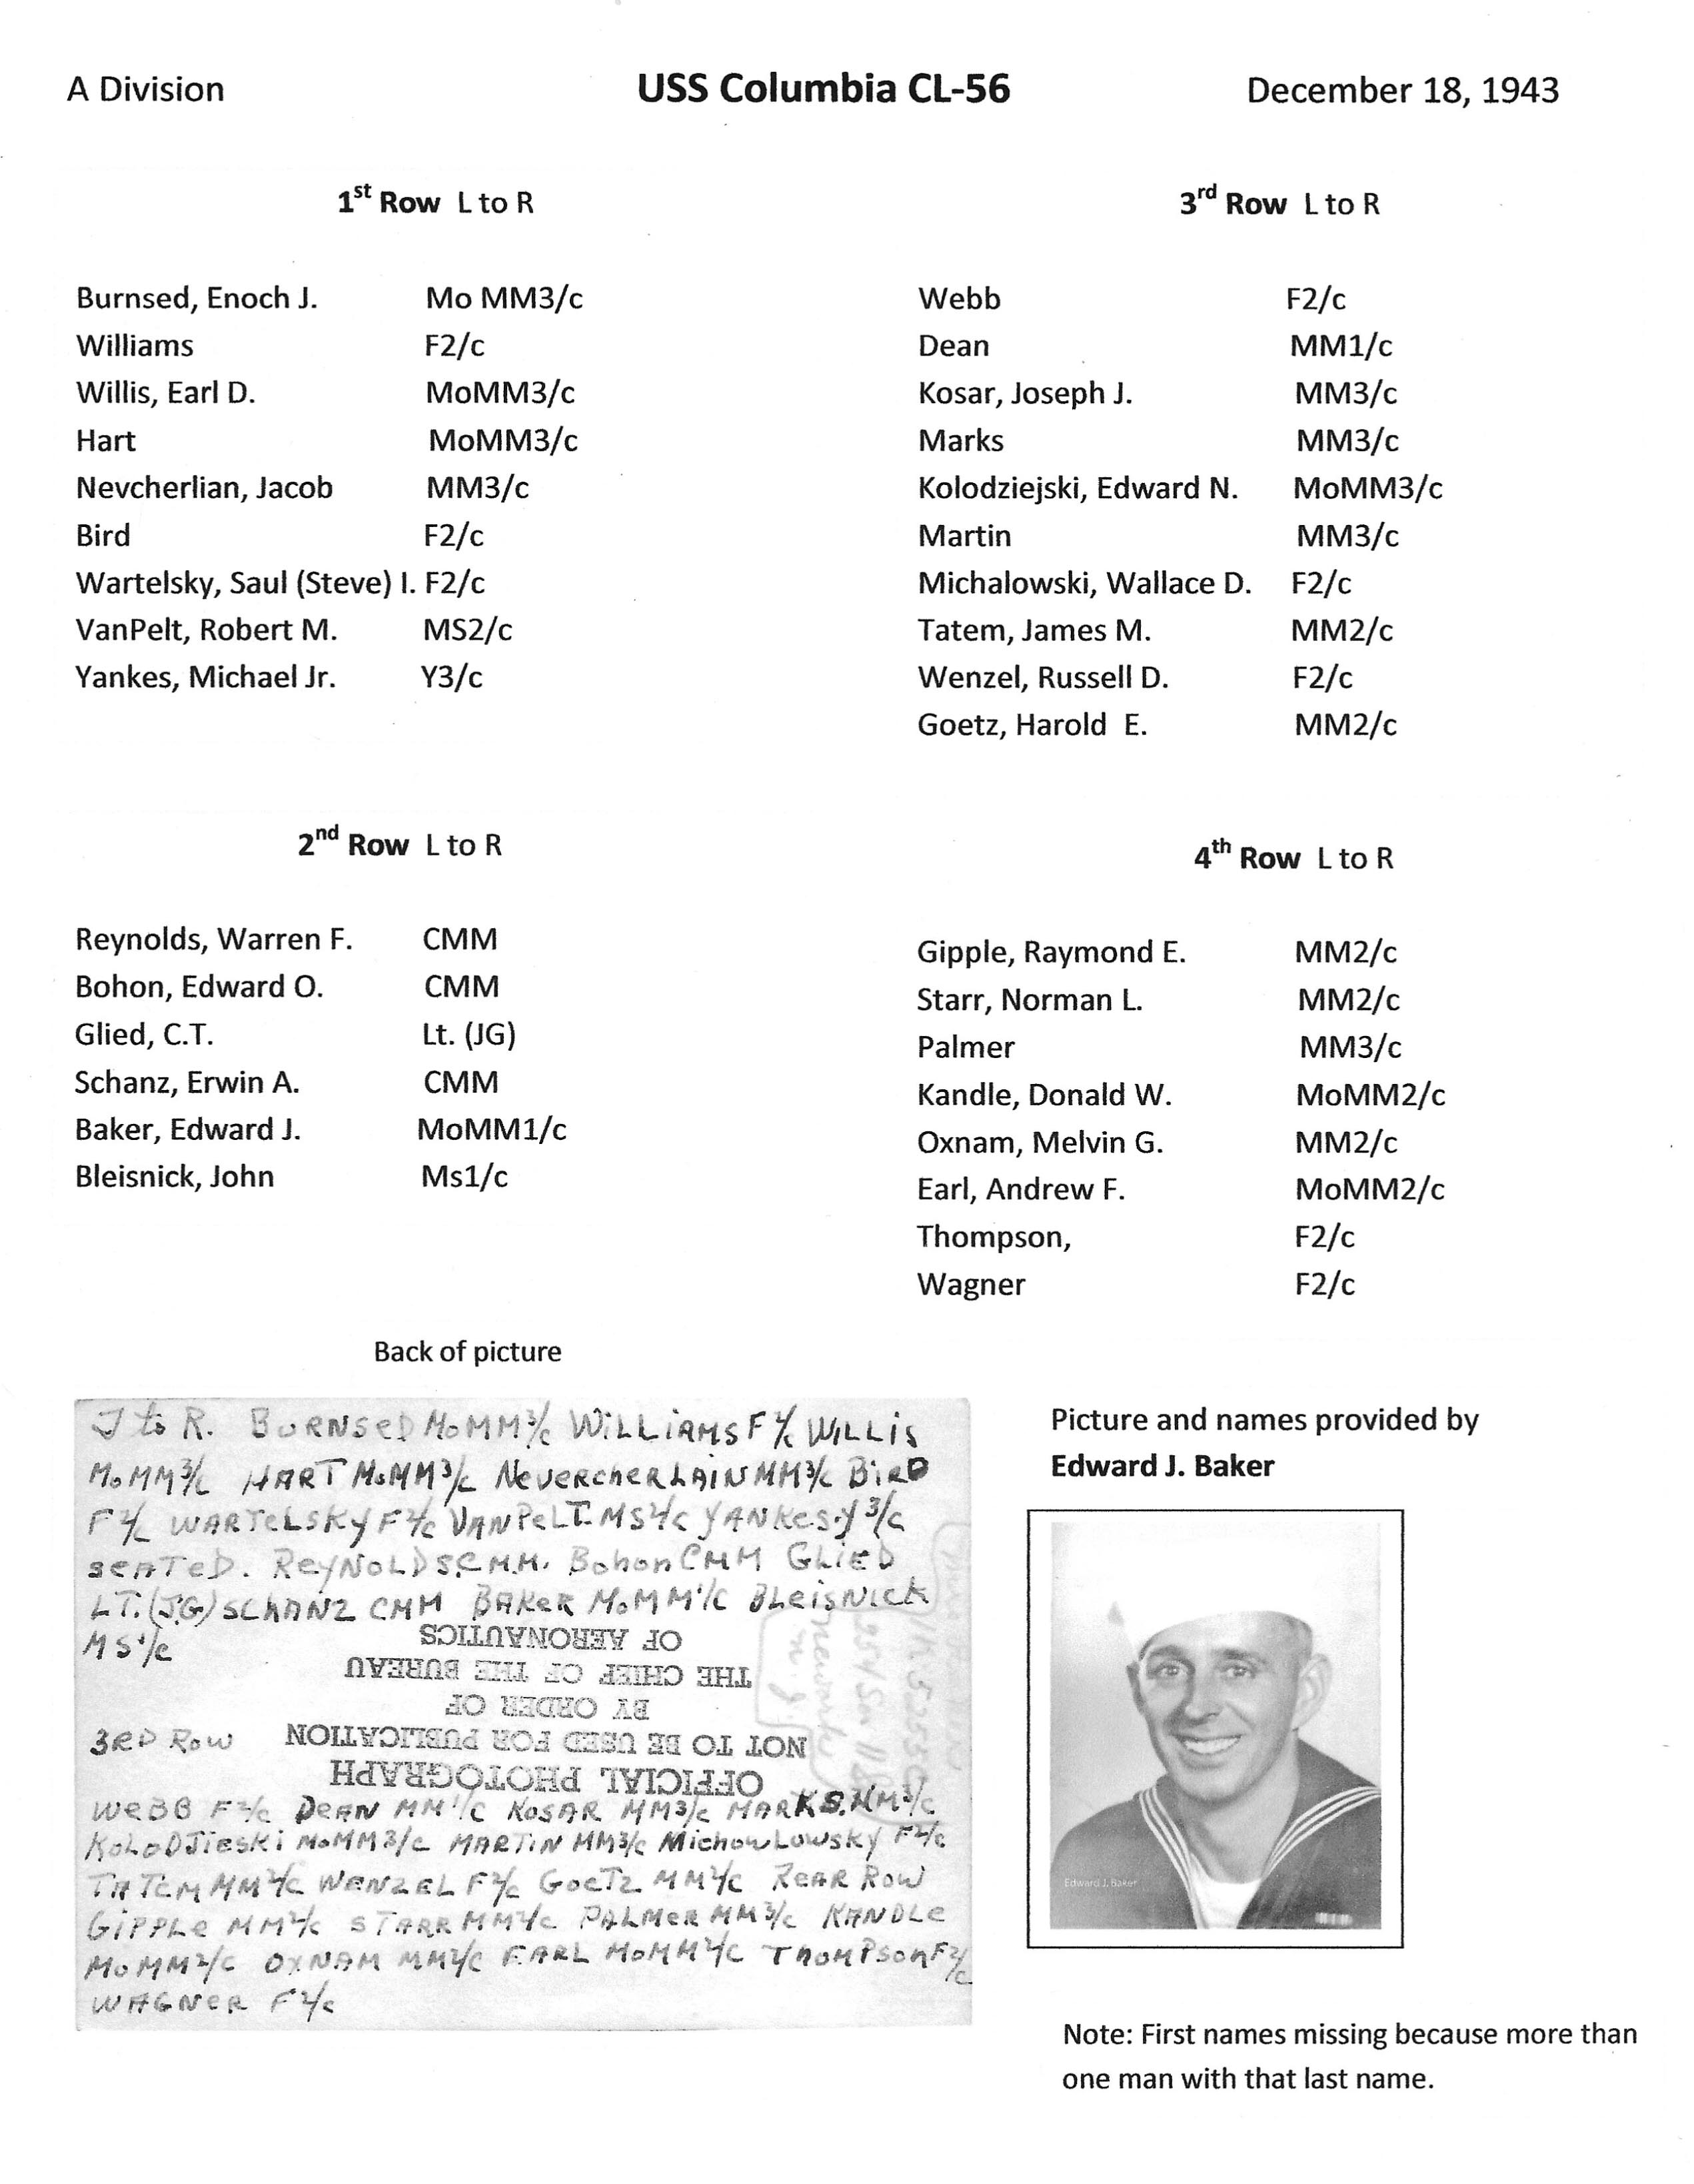 A Division USS Columbia CL-56 December 18, 1943
1st Row L to R
Burnsed, Enoch J. Mo MM3/c
Williams F2/c
Willis, Earl D. MoMM3/c
Hart MoMM3/c
Nevcherlian, Jacob MM3/c
Bird F2/c
Wartelsky, Saul (Steve) I. F2/c
VanPelt, Robert M. MS2/c
Yankes, Michael Jr. Y3/c
2nd Row L to R
Reynolds, Warren F. CMM
Bohon, Edward O. CMM
Glied, C.T. Lt. (JG)
Schanz, Erwin A. CMM
Baker, Edward J. MoMM1/c
Bleisnick, John Ms1/c
3rd Row L to R
Webb F2/c
Dean MM1/c
Kosar, Joseph J. MM3/c
Marks MM3/c
Kolodziejski, Edward N. MoMM3/c
Martin MM3/c
Michalowski, Wallace D. F2/c
Tatem, James M. MM2/c
Wenzel, Russell D. F2/c
Goetz, Harold E. MM2/c
4th Row L to R
Gipple, Raymond E. MM2/c
Starr, Norman L. MM2/c
Palmer MM3/c
Kandle, Donald W. MoMM2/c
Oxnam, Melvin G. MM2/c
Earl, Andrew F. MoMM2/c
Thompson, F2/c
Wagner F2/c
Back of picture
to R. BURNSED MoMM3/c WILLIAMS F2/c WILLIS
MoMM3/c HART MoMM3/c NEVERCHERLAIN MM3/c BIRD
F2/c WARTELSKY F2/c VANPELT. MS2/c YANKES. Y3/c
SEATED. REYNOLDS. C.M.M. Bohon CMM GLIED
LT. (J.G) SCHANZ CMM BAKER MoMM1/c BLEISNICK
MS1/c
OFFICIAL PHOTOGRAPH
NOT TO BE USED FOR PUBLICATION
BY ORDER OF
THE CHIEF OF THE BUREAU
OF AERONAUTICS
3RD ROW
WEBB F2/c DEAN MM1/c KOSAR MM3/c MARKS. MM3/c
KOLODJIESKI MoMM3/c MARTIN MM3/c MICHOWLOWSKY F2/c
TATEM MM2/c WENZEL F2/c GOETZ MM2/c REAR ROW
GIPPLE MM2/c STARR MM2/c PALMER MM3/c KANDLE
MoMM2/c OXNAM MM2/c EARL MoMM2/c THOMPSON F2/c
WAGNER F2/c
Picture and names provided by
Edward J. Baker
Edward J. Baker
Note: First names missing because more than
one man with that last name.